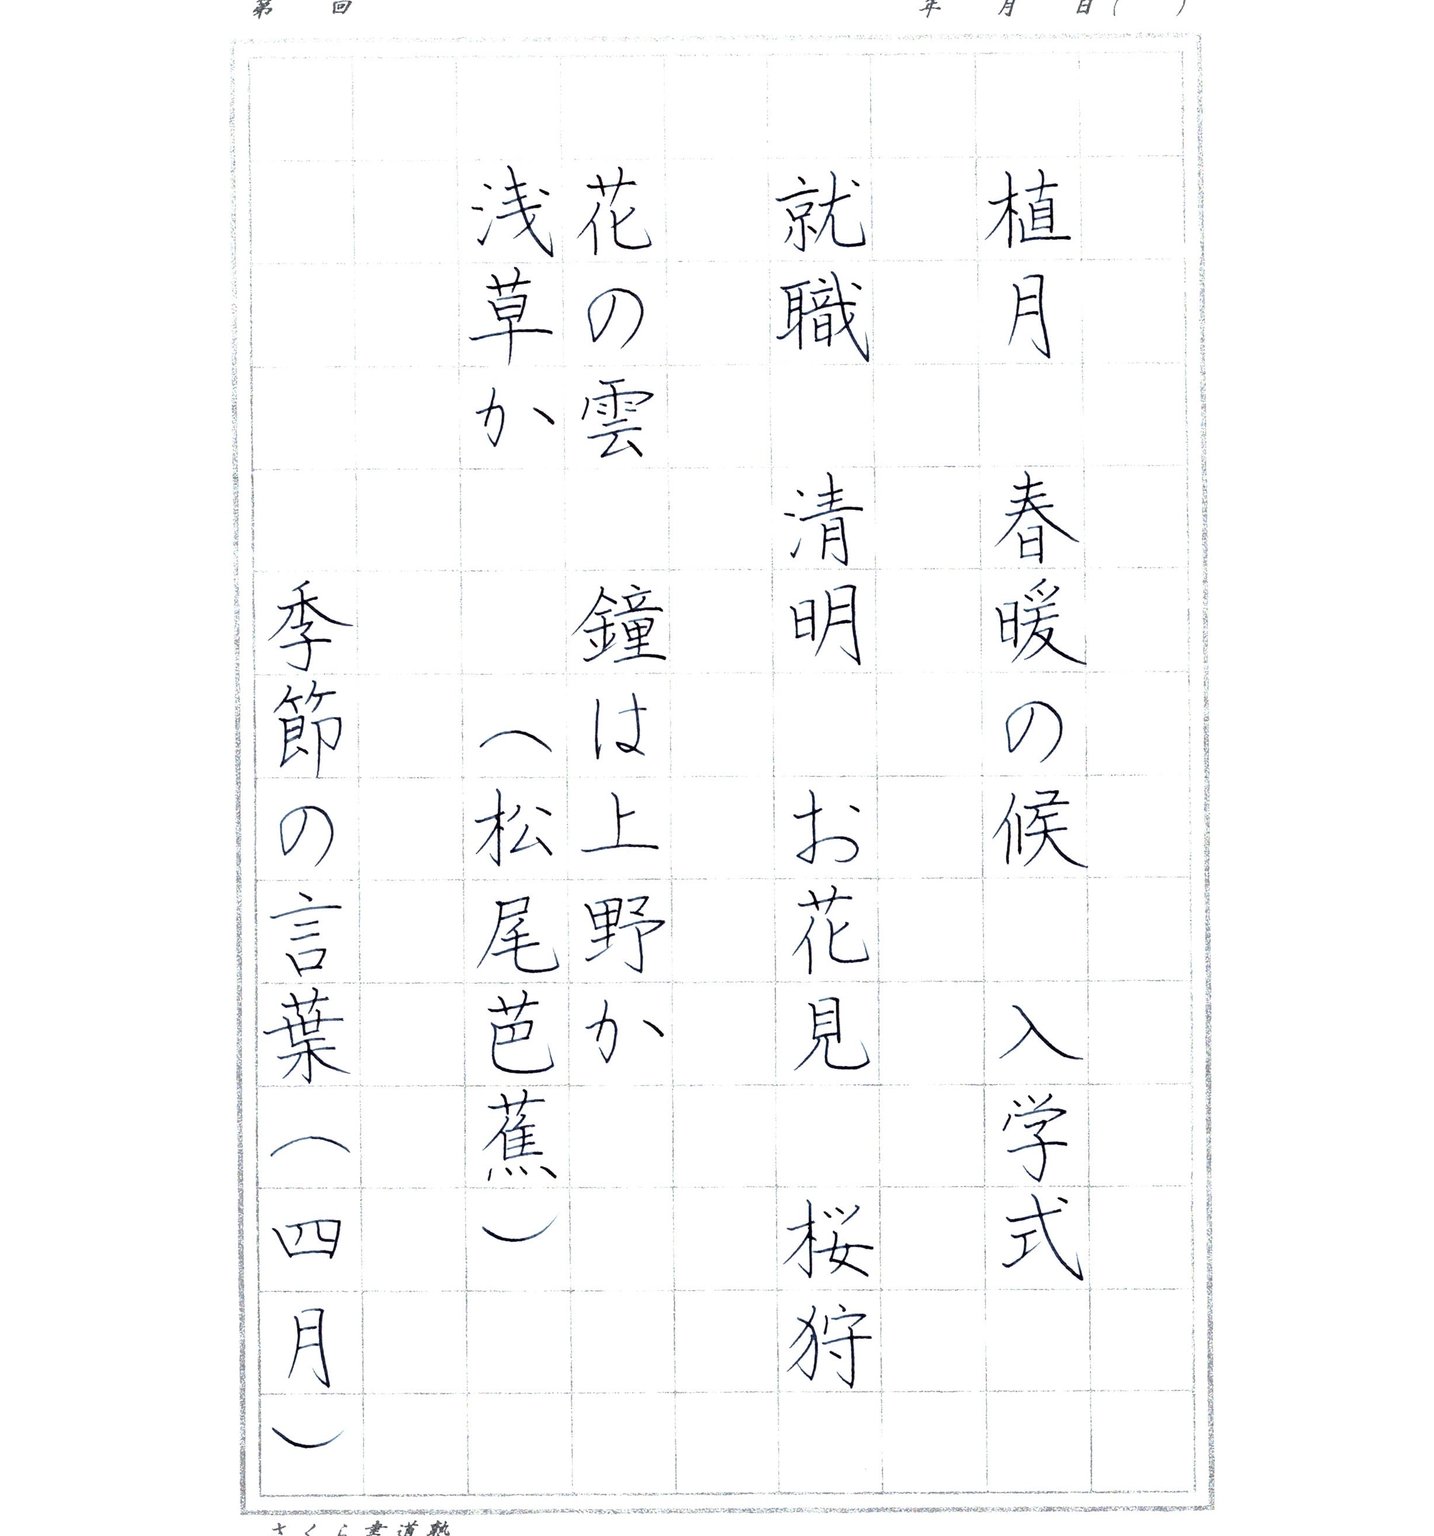 第　回　　年　月　日（　）
植月　春暖の候　入学式
就職　清明　お花見　桜狩
花の雲　鐘は上野か
浅草か　　（松尾芭蕉）
季節の言葉（四月）
さくら書道塾